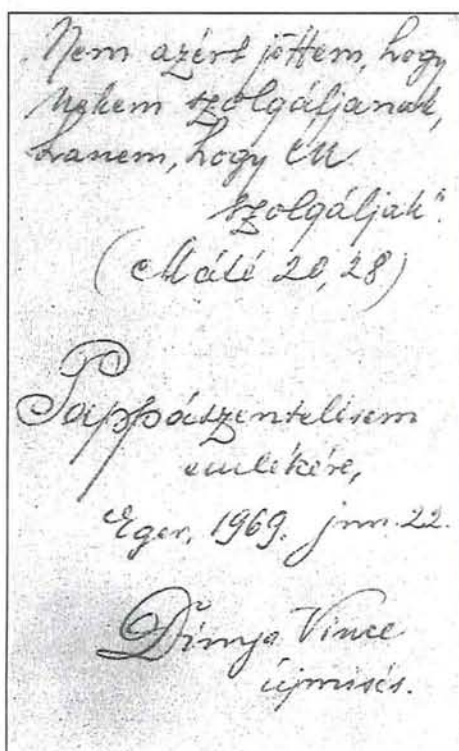 „Nem azért jöttem, hogy
nekem szolgáljanak,
hanem, hogy én
szolgáljak".
(Máté 20,28)
Pappászentelésem
emlékére,
Eger, 1969. jun. 22.
Vince
újmisés.